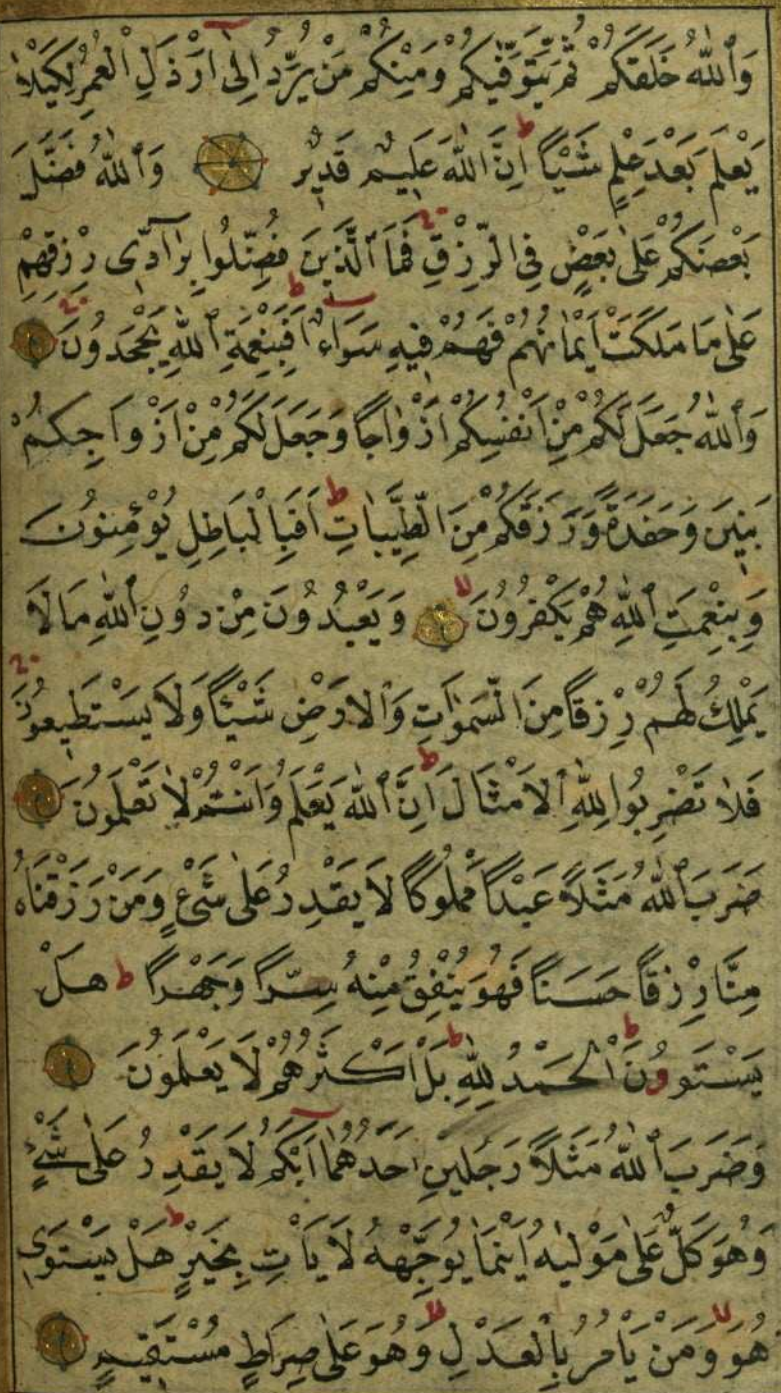 وَٱللّٰهُ خَلَقَكُمْ ثُمَّ يَتَوَفّٰيكُمْ وَمِنْكُمْ مَنْ يُرَدُّ اِلٰٓى اَرْذَلِ الْعُمُرِ لِكَيْلَا
يَعْلَمَ بَعْدَ عِلْمٍ شَيْـًٔا ط اِنَّ اللّٰهَ عَلِيمٌ قَدِيرٌ وَٱللّٰهُ فَضَّلَ
بَعْضَكُمْ عَلٰى بَعْضٍ فِي الرِّزْقِ فَمَا ٱلَّذِينَ فُضِّلُوا بِرَآدِّي رِزْقِهِمْ
عَلٰى مَا مَلَكَتْ اَيْمَانُهُمْ فَهُمْ فِيهِ سَوَآءٌ ط اَفَبِنِعْمَةِ ٱللّٰهِ يَجْحَدُونَ
وَٱللّٰهُ جَعَلَ لَكُمْ مِنْ اَنْفُسِكُمْ اَزْوَاجًا وَجَعَلَ لَكُمْ مِنْ اَزْوَاجِكُمْ
بَنِينَ وَحَفَدَةً وَرَزَقَكُمْ مِنَ الطَّيِّبَاتِ ط اَفَبِالْبَاطِلِ يُؤْمِنُونَ
وَبِنِعْمَتِ ٱللّٰهِ هُمْ يَكْفُرُونَ لا وَيَعْبُدُونَ مِنْ دُونِ ٱللّٰهِ مَا لَا
يَمْلِكُ لَهُمْ رِزْقًا مِنَ السَّمٰوَاتِ وَالْاَرْضِ شَيْـًٔا وَلَا يَسْتَطِيعُونَ
فَلَا تَضْرِبُوا لِلّٰهِ ٱلْاَمْثَالَ ط اِنَّ ٱللّٰهَ يَعْلَمُ وَاَنْتُمْ لَا تَعْلَمُونَ
ضَرَبَ ٱللّٰهُ مَثَلًا عَبْدًا مَمْلُوكًا لَا يَقْدِرُ عَلٰى شَيْءٍ وَمَنْ رَزَقْنَاهُ
مِنَّا رِزْقًا حَسَنًا فَهُوَ يُنْفِقُ مِنْهُ سِرًّا وَجَهْرًا ط هَلْ
يَسْتَوُونَ ط اَلْحَمْدُ لِلّٰهِ ط بَلْ اَكْثَرُهُمْ لَا يَعْلَمُونَ
وَضَرَبَ ٱللّٰهُ مَثَلًا رَجُلَيْنِ اَحَدُهُمَآ اَبْكَمُ لَا يَقْدِرُ عَلٰى شَيْءٍ
وَهُوَ كَلٌّ عَلٰى مَوْلٰيهُ اَيْنَمَا يُوَجِّهْهُ لَا يَأْتِ بِخَيْرٍ ط هَلْ يَسْتَوِي
هُوَ لا وَمَنْ يَأْمُرُ بِالْعَدْلِ لا وَهُوَ عَلٰى صِرَاطٍ مُسْتَقِيمٍ